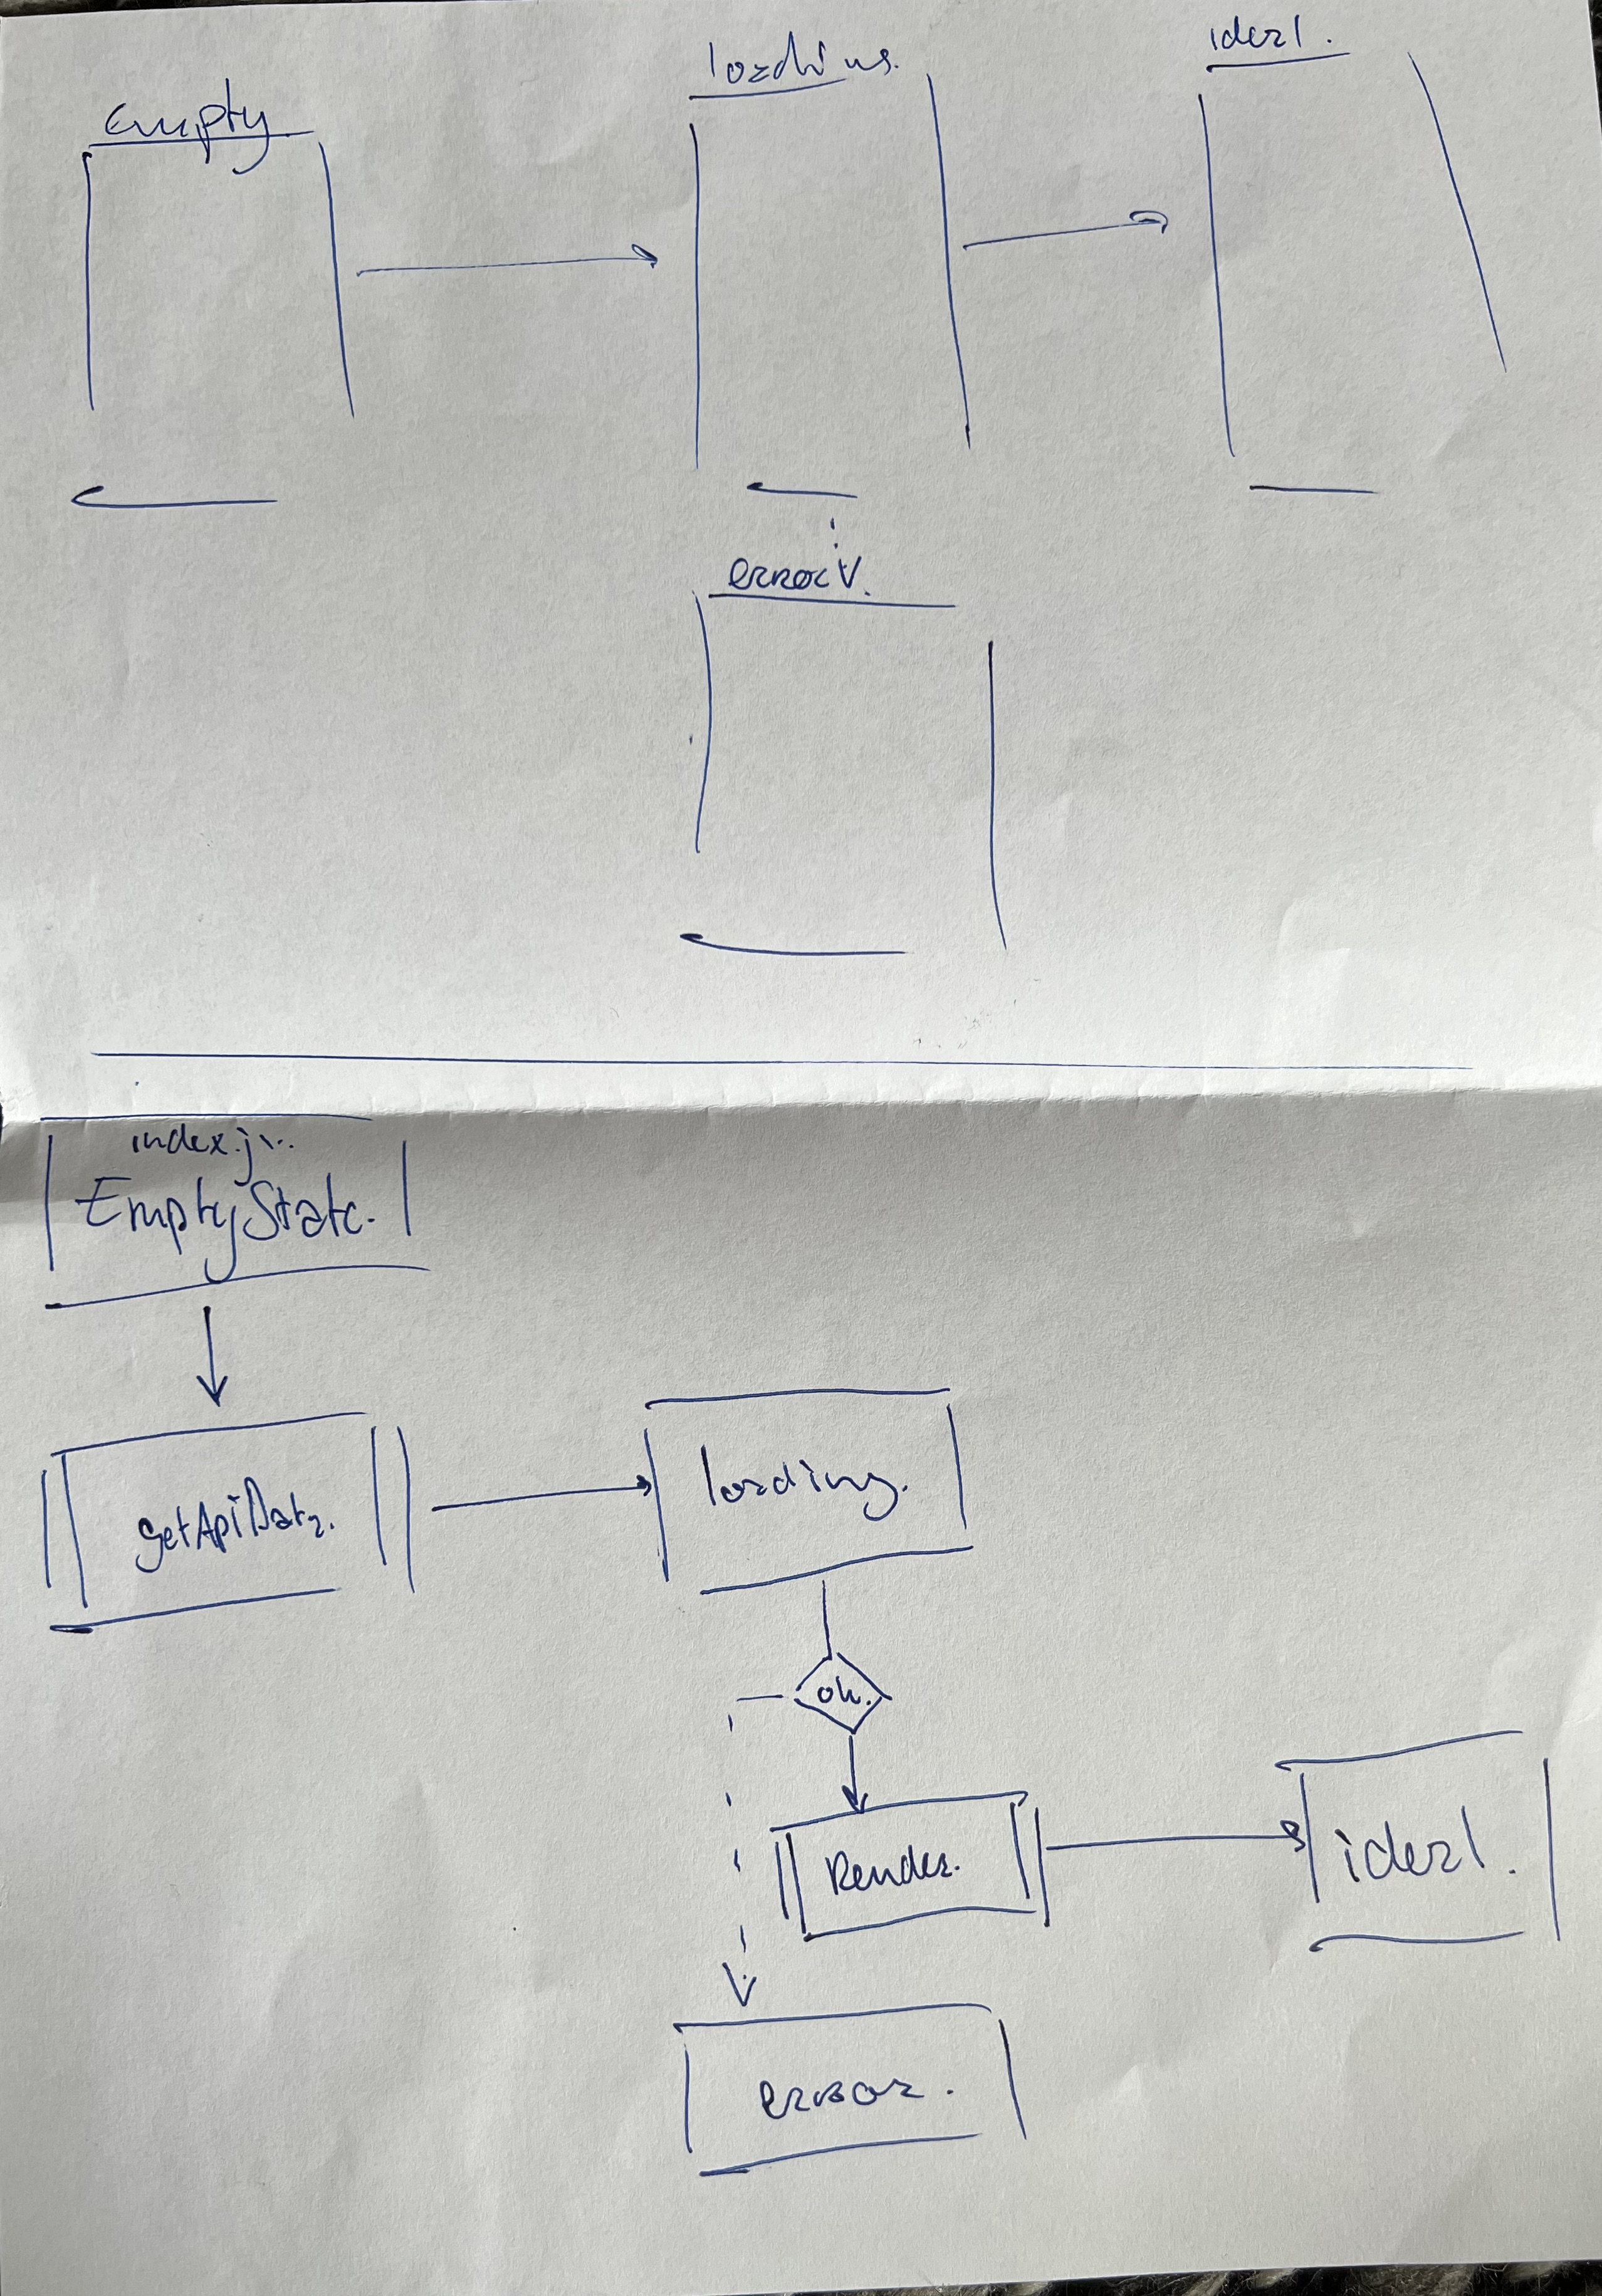 empty
loading.
ideal.
error.
index.js..
EmptyState.
getApiData.
loading.
ok.
Render.
ideal.
error.